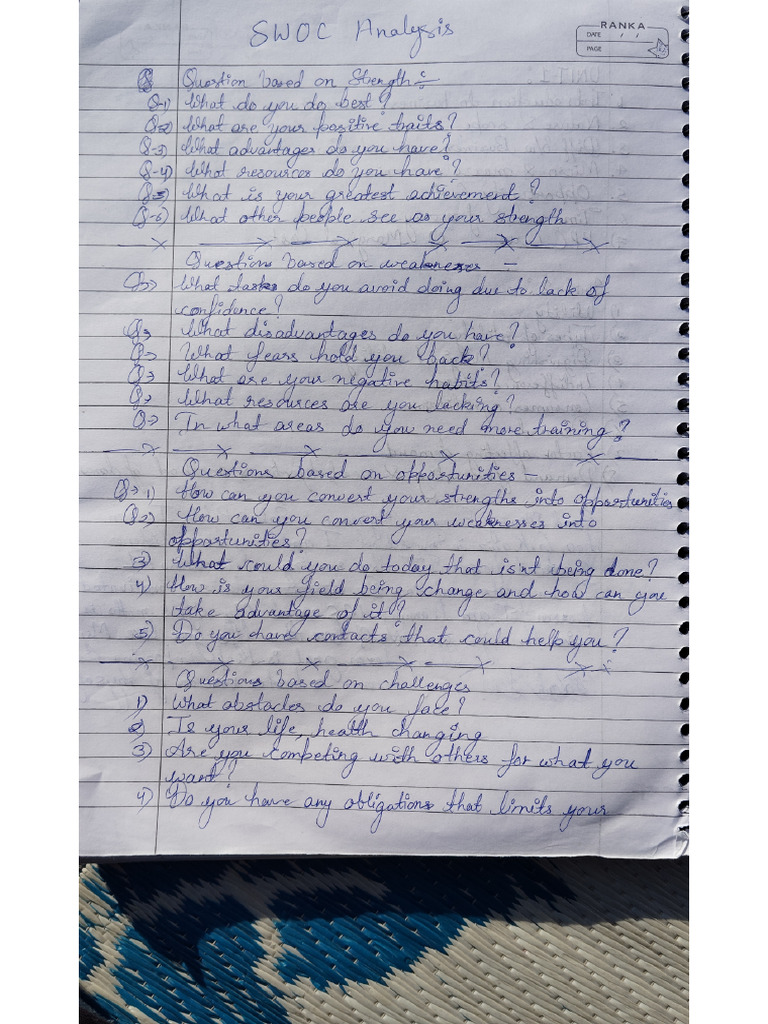 SWOC Analysis
RANKA
DATE / /
PAGE
Q Question based on Strength :-
Q-1) What do you do best?
Q-2) What are your positive traits?
Q-3) What advantages do you have?
Q-4) What resources do you have?
Q-5) What is your greatest achievement?
Q-6) What other people see as your strength
Questions based on weaknesses -
Q-> What tasks do you avoid doing due to lack of
confidence?
Q-> What disadvantages do you have?
Q-> What fears hold you back?
Q-> What are your negative habits?
Q-> What resources are you lacking?
Q-> In what areas do you need more training?
Questions based on opportunities -
Q-> 1) How can you convert your strengths into opportunities
Q 2) How can you convert your weaknesses into
opportunities?
3) What could you do today that isn't being done?
4) How is your field being change and how can you
take advantage of it?
5) Do you have contacts that could help you?
Questions based on challenges
1) What obstacles do you face?
2) Is your life, health changing
3) Are you competing with others for what you
want?
4) Do you have any obligations that limits your